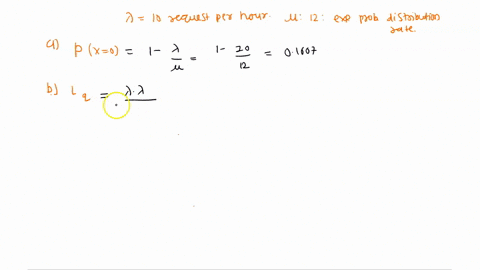 λ = 10 request per hour. μ: 12: exp prob distribution rate.
a) P(x=0) = 1 - λ/μ = 1 - 20/12 = 0.1607
b) Lq = λ.λ